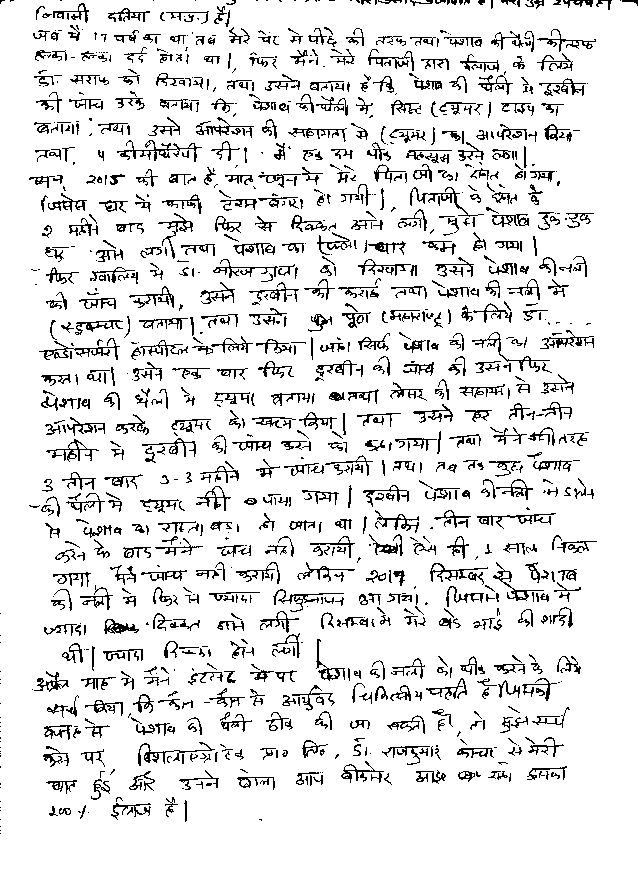 निवासी दतिया (म.प्र.) है।
जब मैं 17 वर्ष का था तब मेरे पेट में पीछे की तरफ तथा पेशाब की थैली की तरफ
हल्का-हल्का दर्द होता था।, फिर मैंने, मेरे पिताजी द्वारा ईलाज, के लिये
डॉ. सराफ को दिखाया, तथा उसने बताया है कि, पेशाब की थैली में दूरबीन
की जांच करके बताया कि, पेशाब की थैली में, सिस्ट (ट्यूमर) टाइप का
बताया, तथा उसने ऑपरेशन की सहायता से (ट्यूमर) का ऑपरेशन किया
तथा, 4 कीमोथैरेपी दी। में एक दम ठीक महसूस करने लगा।
सन, 2015 की बात है, माह जून में मेरे पिताजी का देहांत हो गया,
जिससे घर में काफी टेंशन वगैरा हो गयी।, पिताजी के देहांत के
2 महीने बाद मुझे फिर से दिक्कत आने लगी, मुझे पेशाब रुक रुक
कर आने लगी तथा पेशाब का (फ्लो) धार कम हो गया।
फिर ग्वालियर में डॉ. नीरज गुप्ता को दिखाया उसने पेशाब की नली
की जांच करायी, उसने दूरबीन की कराई तथा पेशाब की नली में
(स्ट्रक्चर) बताया। तथा उसने पूना (महाराष्ट्र) के लिये डॉ.
हॉस्पीटल के लिये किया। जहां सिर्फ पेशाब की नली का ऑपरेशन
करता था। उसने एक बार फिर दूरबीन की जांच की उसने फिर
पेशाब की थैली में ट्यूमर बताया तथा लेजर की सहायता से उसने
ऑपरेशन करके ट्यूमर को खत्म किया। तथा उसने हर तीन-तीन
महीने में दूरबीन की जांच करने को कहा गया। तथा मैंने इसी तरह
3 तीन बार 3-3 महीने में जांच करायी। तथा तब तक मुझे पेशाब
की थैली में ट्यूमर नही पाया गया। दूरबीन पेशाब की नली में डालने
से पेशाब का रास्ता बड़ा हो जाता था। लेकिन तीन बार जांच
करने के बाद मैंने जांच नही करायी, ऐसे ही, 1 साल निकल
गया, मैंने जांच नही करायी लेकिन 2017, दिसम्बर से पेशाब
की नली में फिर से ज्यादा सिकुड़नापन आ गया. जिससे पेशाब में
ज्यादा दिक्कत होने लगी दिसम्बर में मेरे बड़े भाई की शादी
थी। ज्यादा दिक्कत होने लगी।
अप्रैल माह में मैंने इंटरनेट पर पेशाब की नली को ठीक करने के लिये
सर्च किया, कि कौन-कौन से आयुर्वेद चिकित्सीय पद्धति है जिसकी
वजह से पेशाब की थैली ठीक की जा सकती है, तो मुझे सर्च
करने पर, प्रा० लि०, डॉ. राजकुमार कोचर से मेरी
बात हुई और उसने बोला आप बीकानेर आइए इसका
200% ईलाज है।